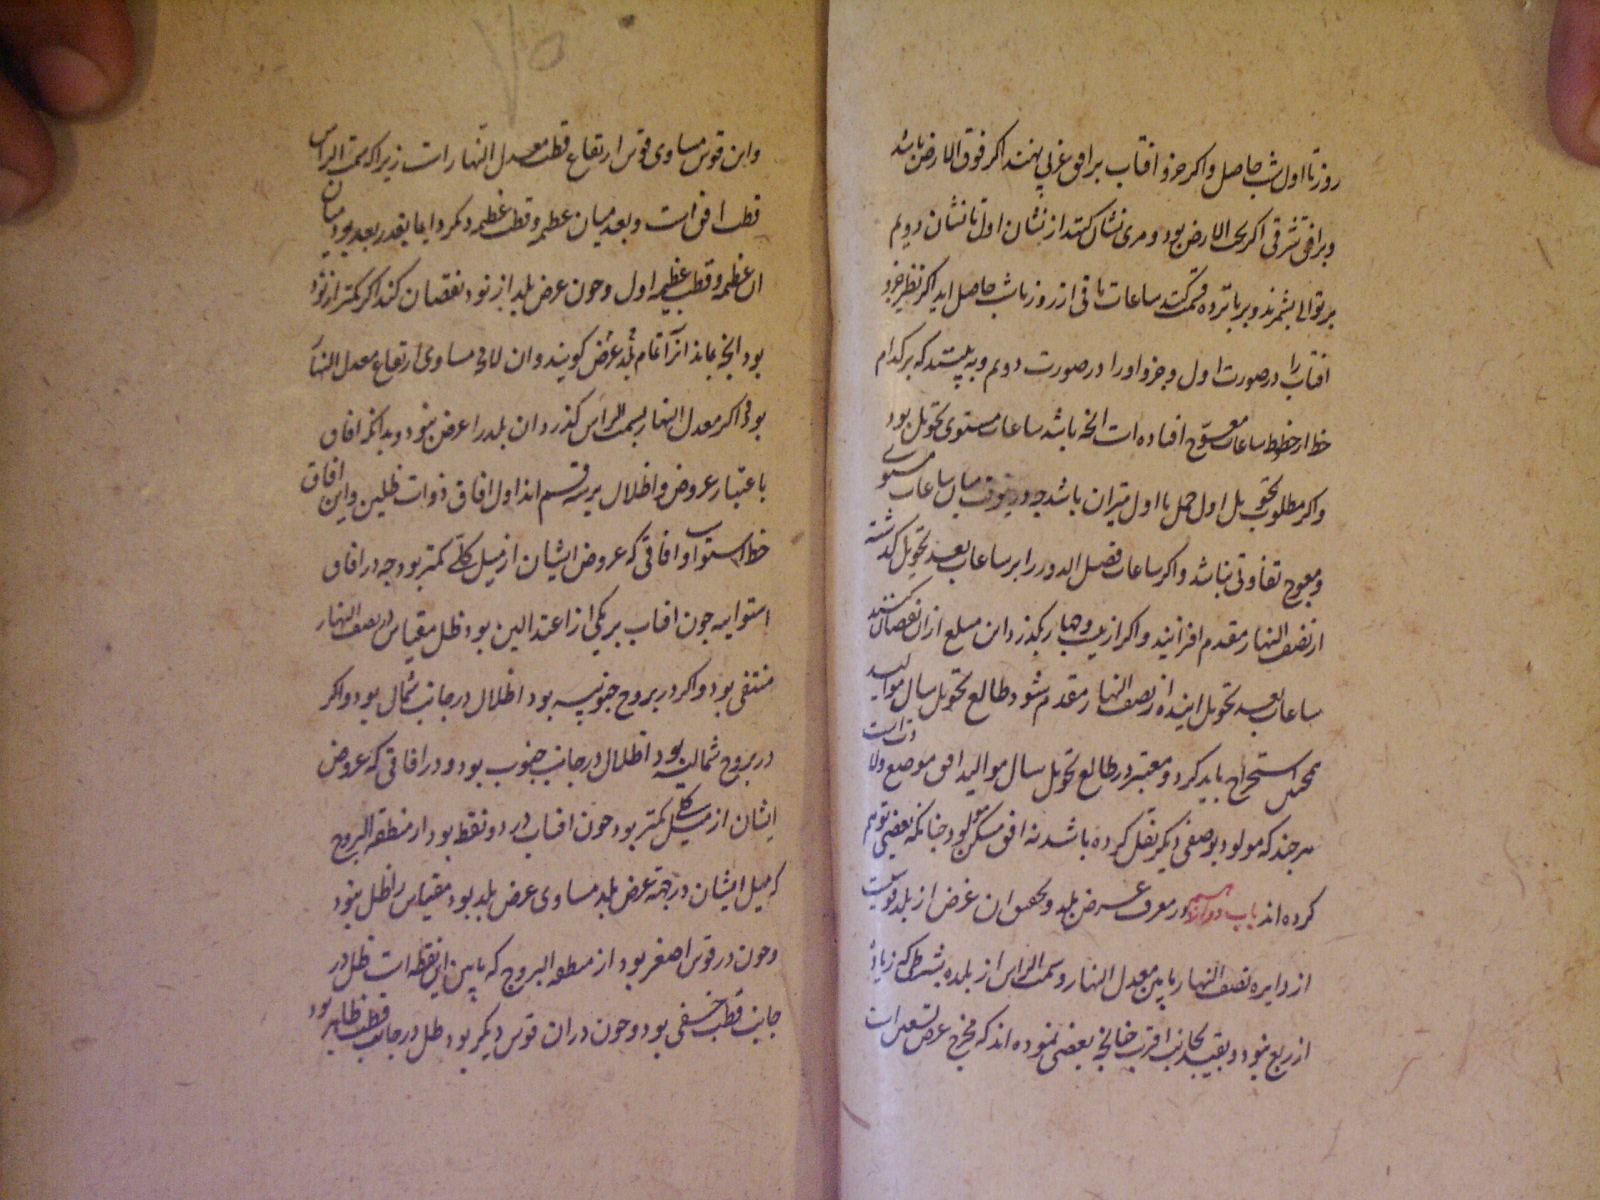 روز تا اول شب حاصل و اکر جزو افتاب بر افق غربی نهند اکر فوق الارض باشد
و بر افق شرقی اکر تحت الارض بود و مری نشان کنند از نشان اول تا نشان دویم
بر توالی بشمرند و بر پانزده قسمت کنند ساعات باقی از روز یا شب حاصل اید اکر نظیر جزو
افتاب را در صورت اول و جزو او را در صورت دویم و به بینند که بر کدام
خط از خطوط ساعات معوج افتاده است انچه باشد ساعات مستوی تحویل بود
و اکر مطلوب تحویل اول حمل یا اول میزان باشد چه درینوقت میان ساعات مستوی
و معوج تفاوتی نباشد و اکر ساعات فضل الدور را بر ساعات بعد تحویل کذشته
از نصف النهار مقدم افزایند و اکر از بیست و چهار بکذرد این مبلغ از ان نقصان کنند
ساعات بعد تحویل اینده از نصف النهار مقدم شود و طالع تحویل سال موالید
همچنین استخراج باید کرد و معتبر در طالع تحویل سال موالید افق موضع ولادتست
هر چند که مولود بموضعی دیکر نقل کرده باشد نه افق مسکن مولود چنانکه بعضی توهم
کرده اند باب دوازدهم در معرفت عرض بلد و تحقیق ان عرض از بلد قوسیست
از دایره نصف النهار مابین معدل النهار و سمت الراس از بلده بشرطی که زیاده
از ربع نبود و بقید بجانب اقرب چنانچه بعضی نموده اند که مخرج عرض تسعین است
و این قوس مساوی قوس ارتفاع قطب معدل النهار است زیرا که سمت الراس
قطب افق است و بعد میان عظیمه و قطب عظیمه دیکر دایما بقدر بعد بود میان
ان عظیمه و قطب عظیمه اول و چون عرض بلد از نود نقصان کنند اکر کمتر از نود
بود انچه بماند انرا تمام عرض بلد کویند و ان لامحاله مساوی ارتفاع معدل النهار
بود و اکر معدل النهار بسمت الراس کذرد ان بلد را عرض نبود و بدانکه افاق
باعتبار عروض و اظلال بر سه قسم اند اول افاق ذوات ظلین و این افاق
خط استوا و افاقی که عروض ایشان از میل کلی کمتر بود چه در افاق
استوایه چون افتاب بر یکی از اعتدالین بود ظل مقیاس در نصف النهار
منتفی بود و اکر در بروج جنوبیه بود اظلال در جانب شمال بود و اکر
در بروج شمالیه بود اظلال در جانب جنوب بود و در افاقی که عروض
ایشان از میل کلی کمتر بود چون افتاب در دو نقطه بود از منطقه البروج
که میل ایشان در جهة عرض بلد مساوی عرض بلد بود مقیاس را ظل نبود
و چون در قوس اصغر بود از منطقه البروج که مابین این نقطه است ظل در
جانب قطب خفی بود و چون در ان قوس دیکر بود ظل در جانب قطب ظاهر بود